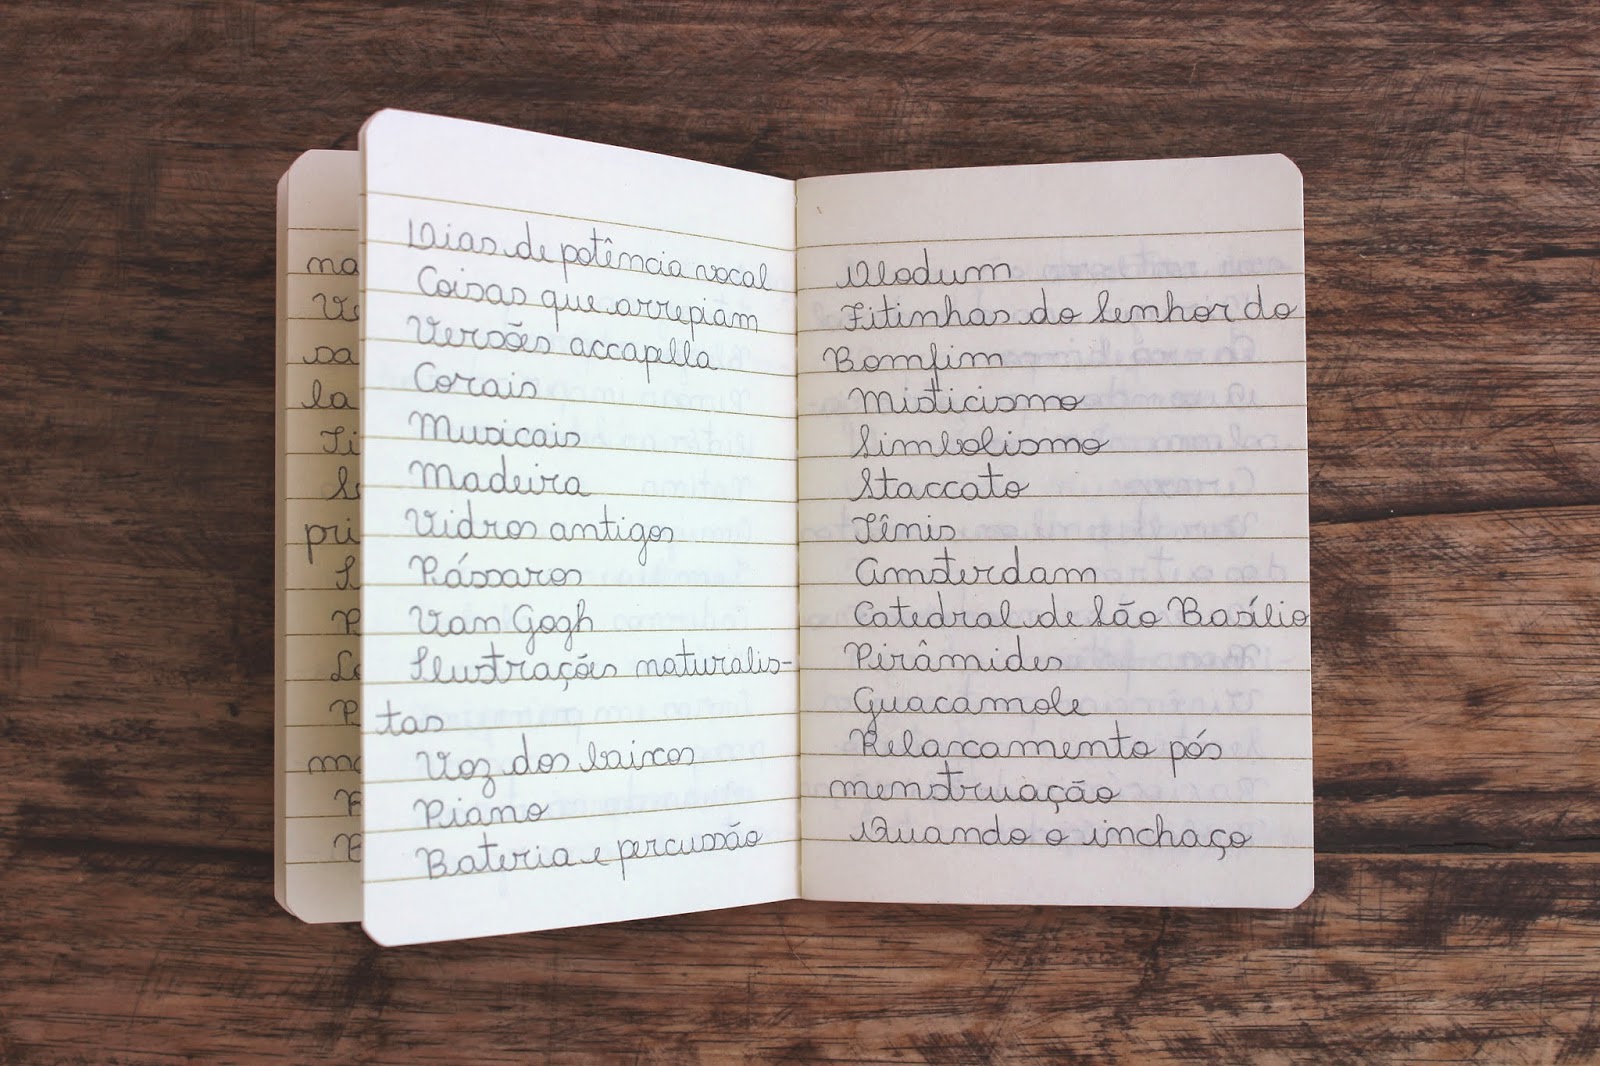 ma
Ve
sa
la
Ti
pri
Dias de potência vocal
Coisas que arrepiam
Versões accapella
Corais
Musicais
Madeira
Vidros antigos
Pássaros
Van Gogh
Ilustrações naturalis-
tas
Voz dos baixos
Piano
Bateria e percussão
Olodum
Fitinhas do Senhor do
Bomfim
Misticismo
Simbolismo
Staccato
Tênis
Amsterdam
Catedral de São Basílio
Pirâmides
Guacamole
Relaxamento pós
menstruação
Quando o inchaço